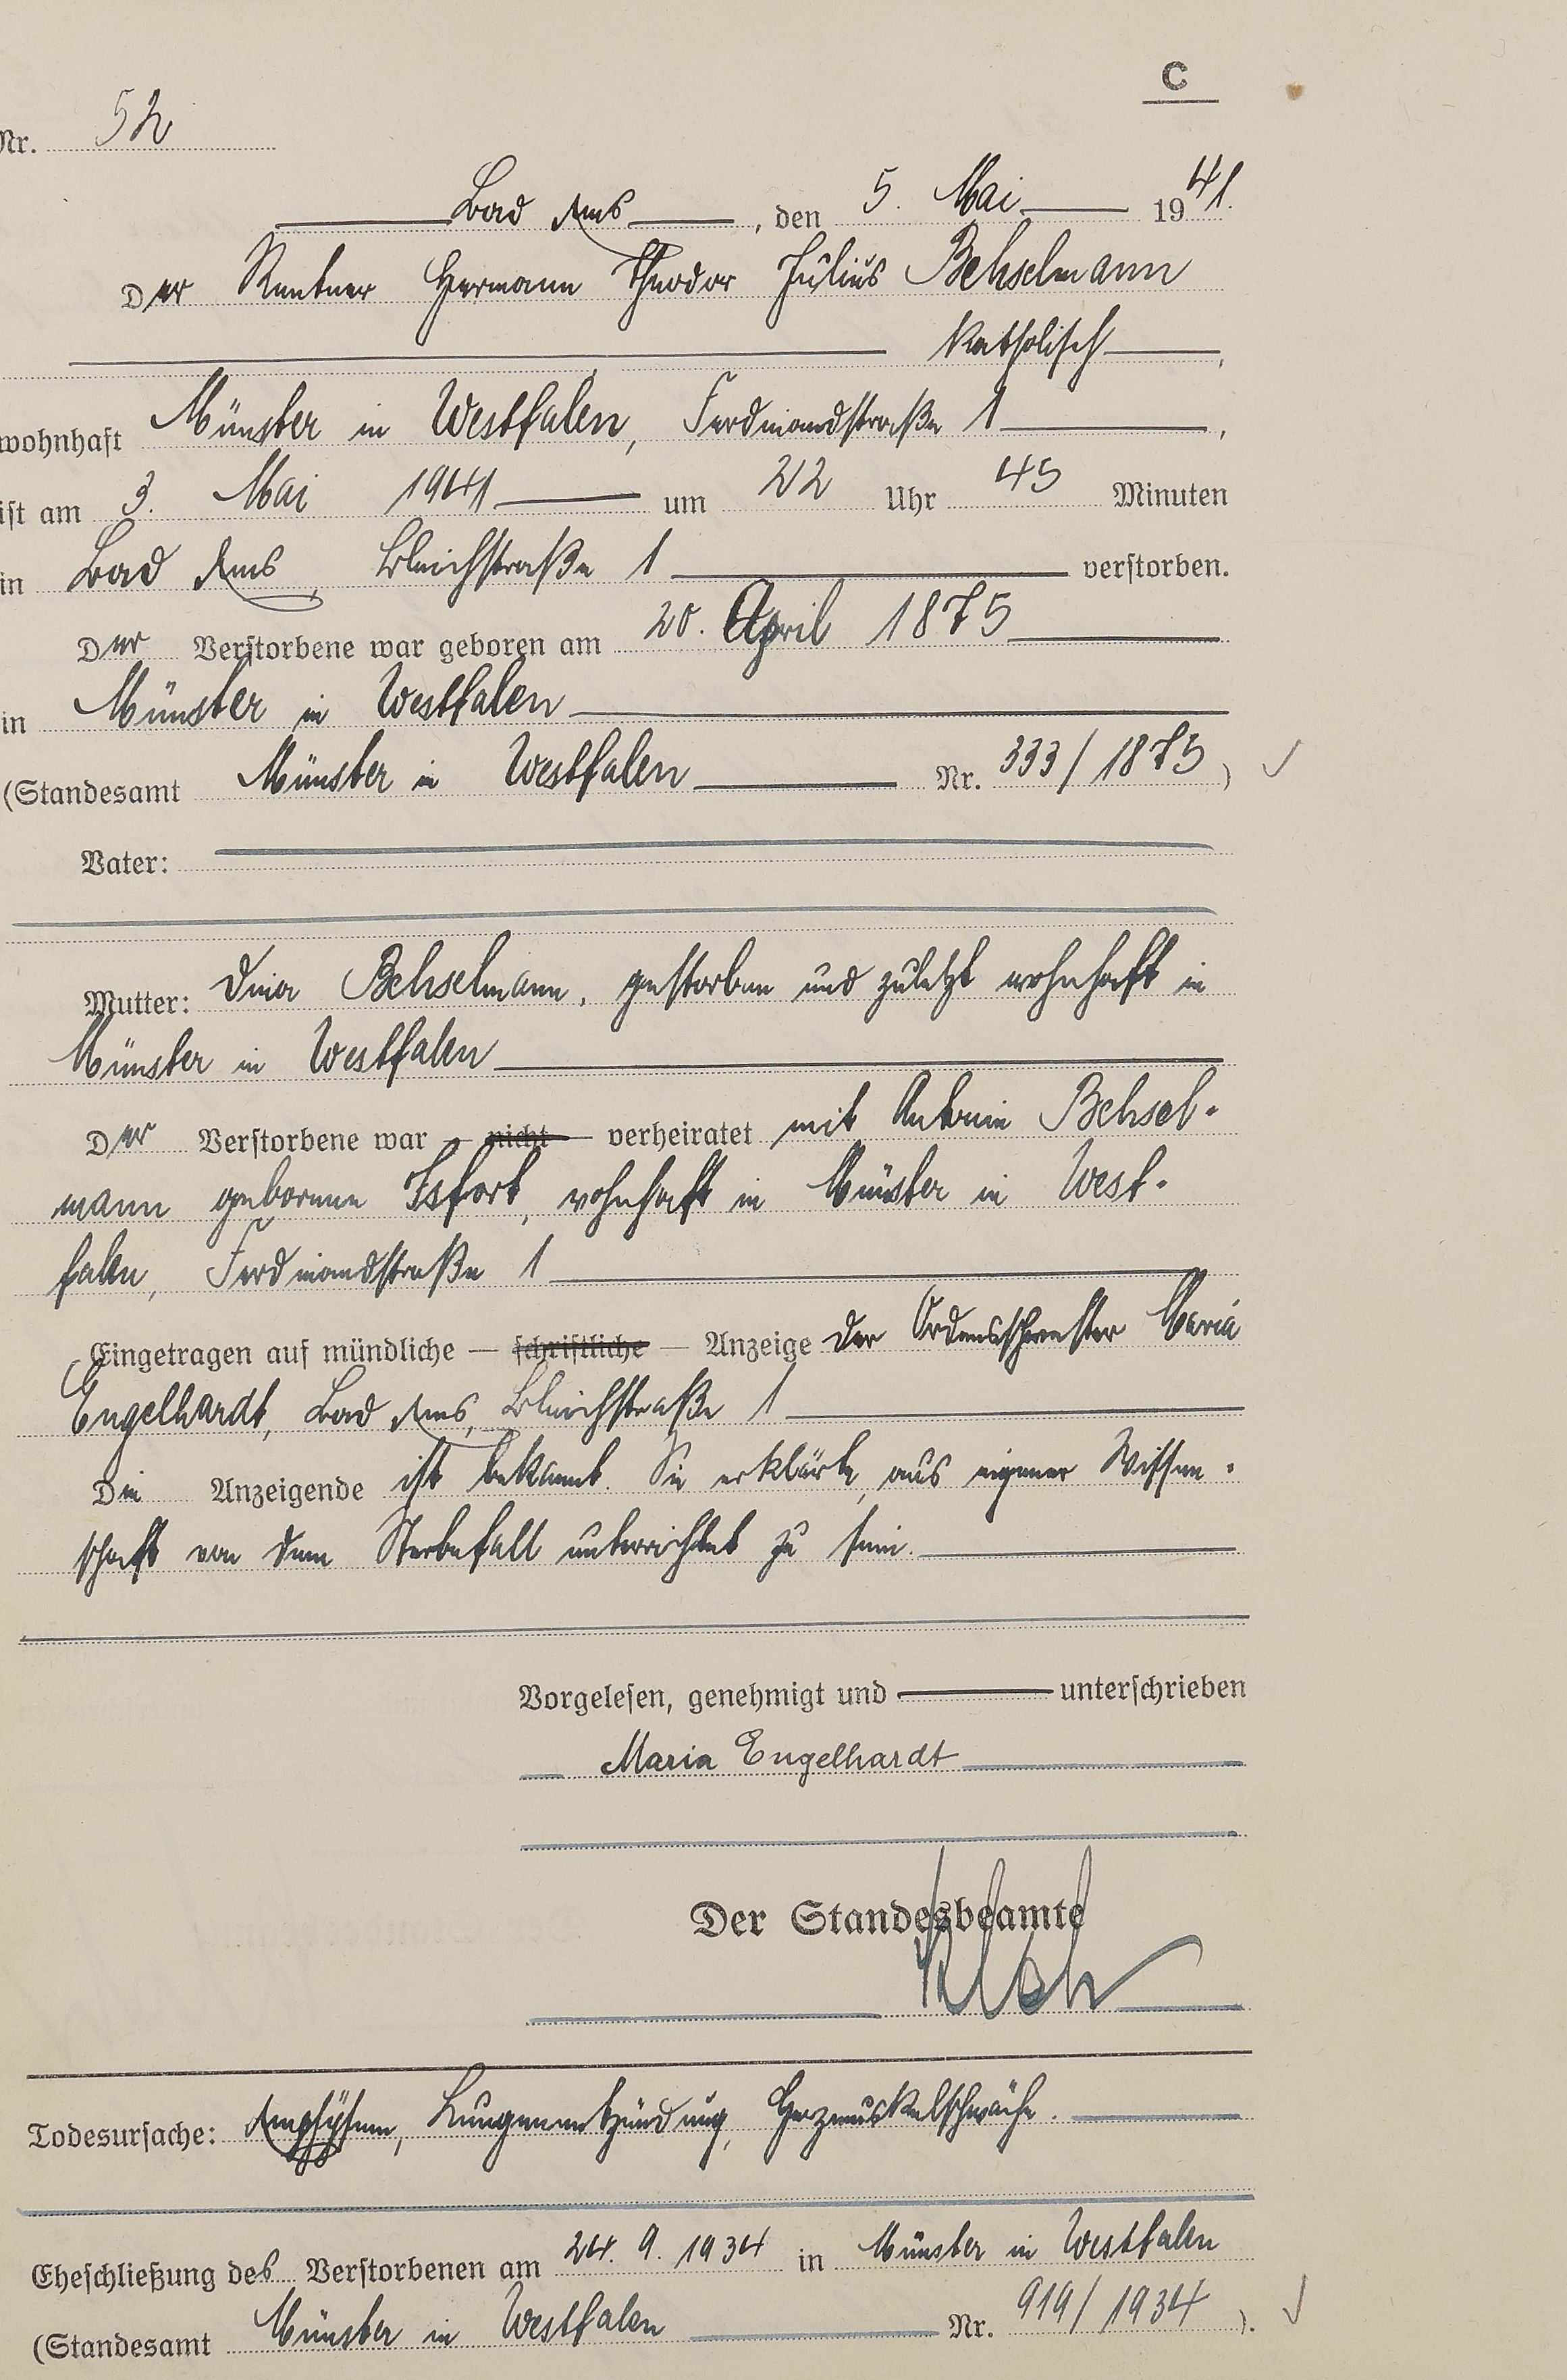 C
Nr. 52
Bad Ems, den 5. Mai 1941.
Der Rentner Hermann Theodor Julius Behselmann
katholisch,
wohnhaft Münster in Westfalen, Ferdinandstraße 1,
ist am 3. Mai 1941 um 22 Uhr 45 Minuten
in Bad Ems, Bleichstraße 1 verstorben.
Der Verstorbene war geboren am 20. April 1875
in Münster in Westfalen
(Standesamt Münster in Westfalen Nr. 333/1875)
Vater:
Mutter: Behselmann, gestorben und zuletzt wohnhaft in
Münster in Westfalen
Der Verstorbene war — nicht — verheiratet mit Antonie Behsel-
mann geborene Isfort, wohnhaft in Münster in West-
falen, Ferdinandstraße 1
Eingetragen auf mündliche — schriftliche — Anzeige der Ordensschwester Maria
Engelhardt, Bad Ems, Bleichstraße 1
Die Anzeigende ist bekannt. Sie erklärte, aus eigener Wissen-
schaft von dem Sterbefall unterrichtet zu sein.
Vorgelesen, genehmigt und unterschrieben
Maria Engelhardt
Der Standesbeamte
Todesursache: Emphysem, Lungenentzündung, Herzmuskelschwäche.
Eheschließung des Verstorbenen am 24. 9. 1934 in Münster in Westfalen
(Standesamt Münster in Westfalen Nr. 919/1934).